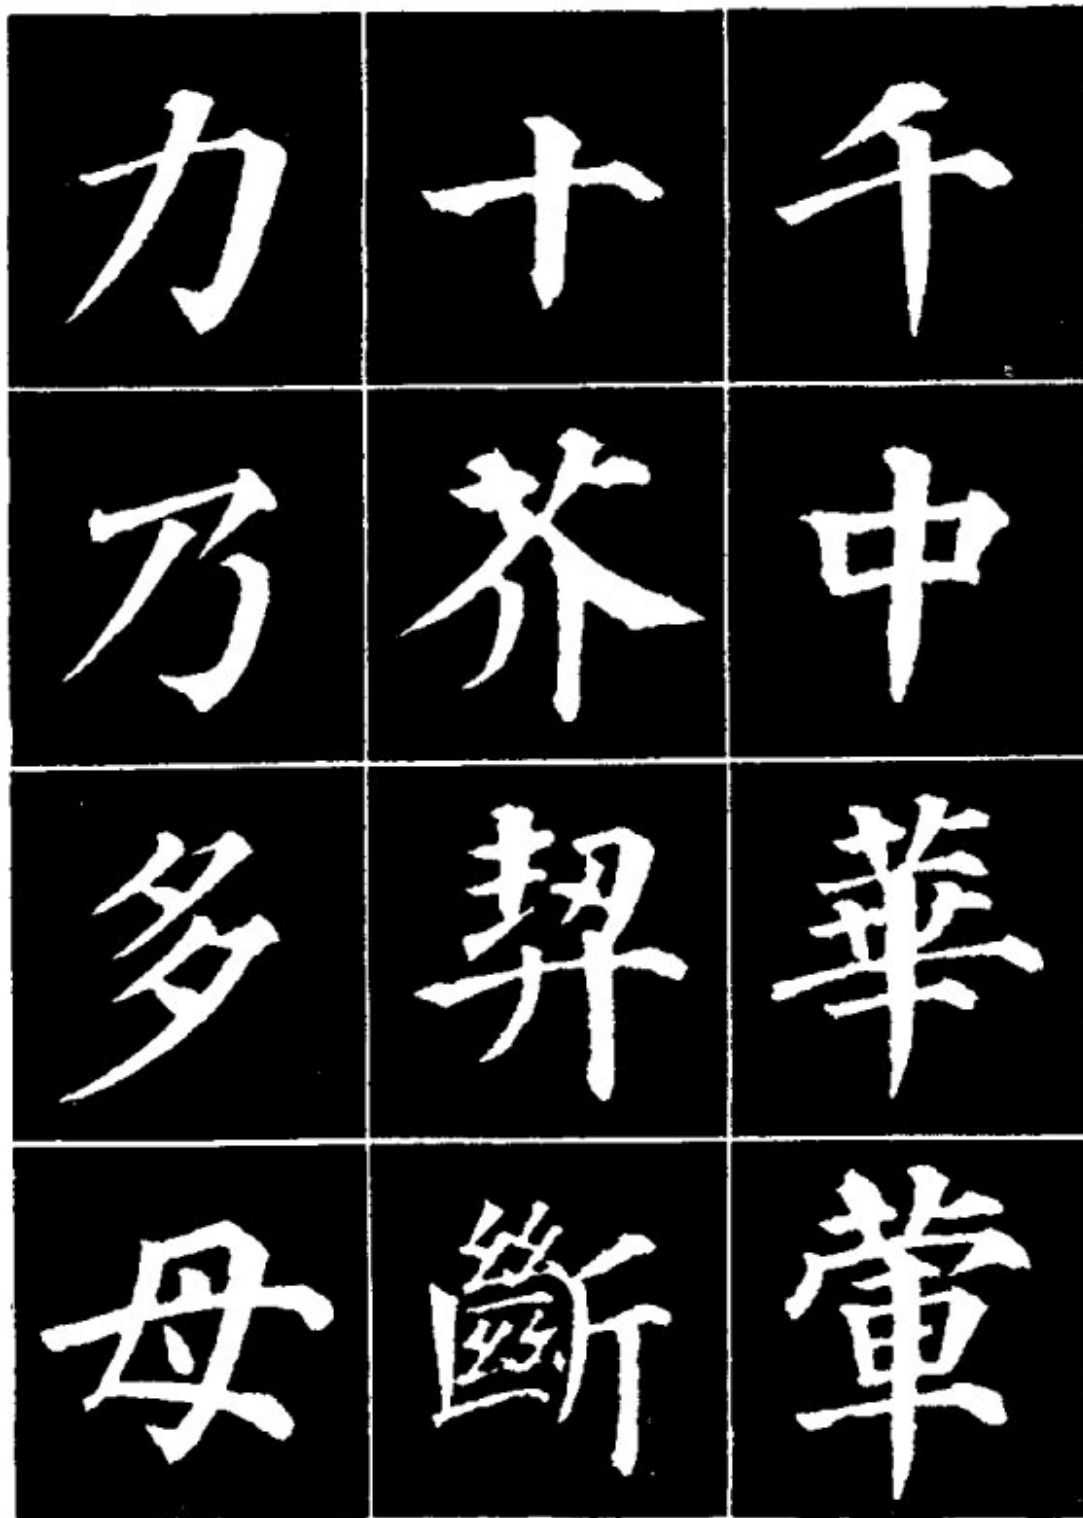 千中華葷
十芥契斷
力乃多母